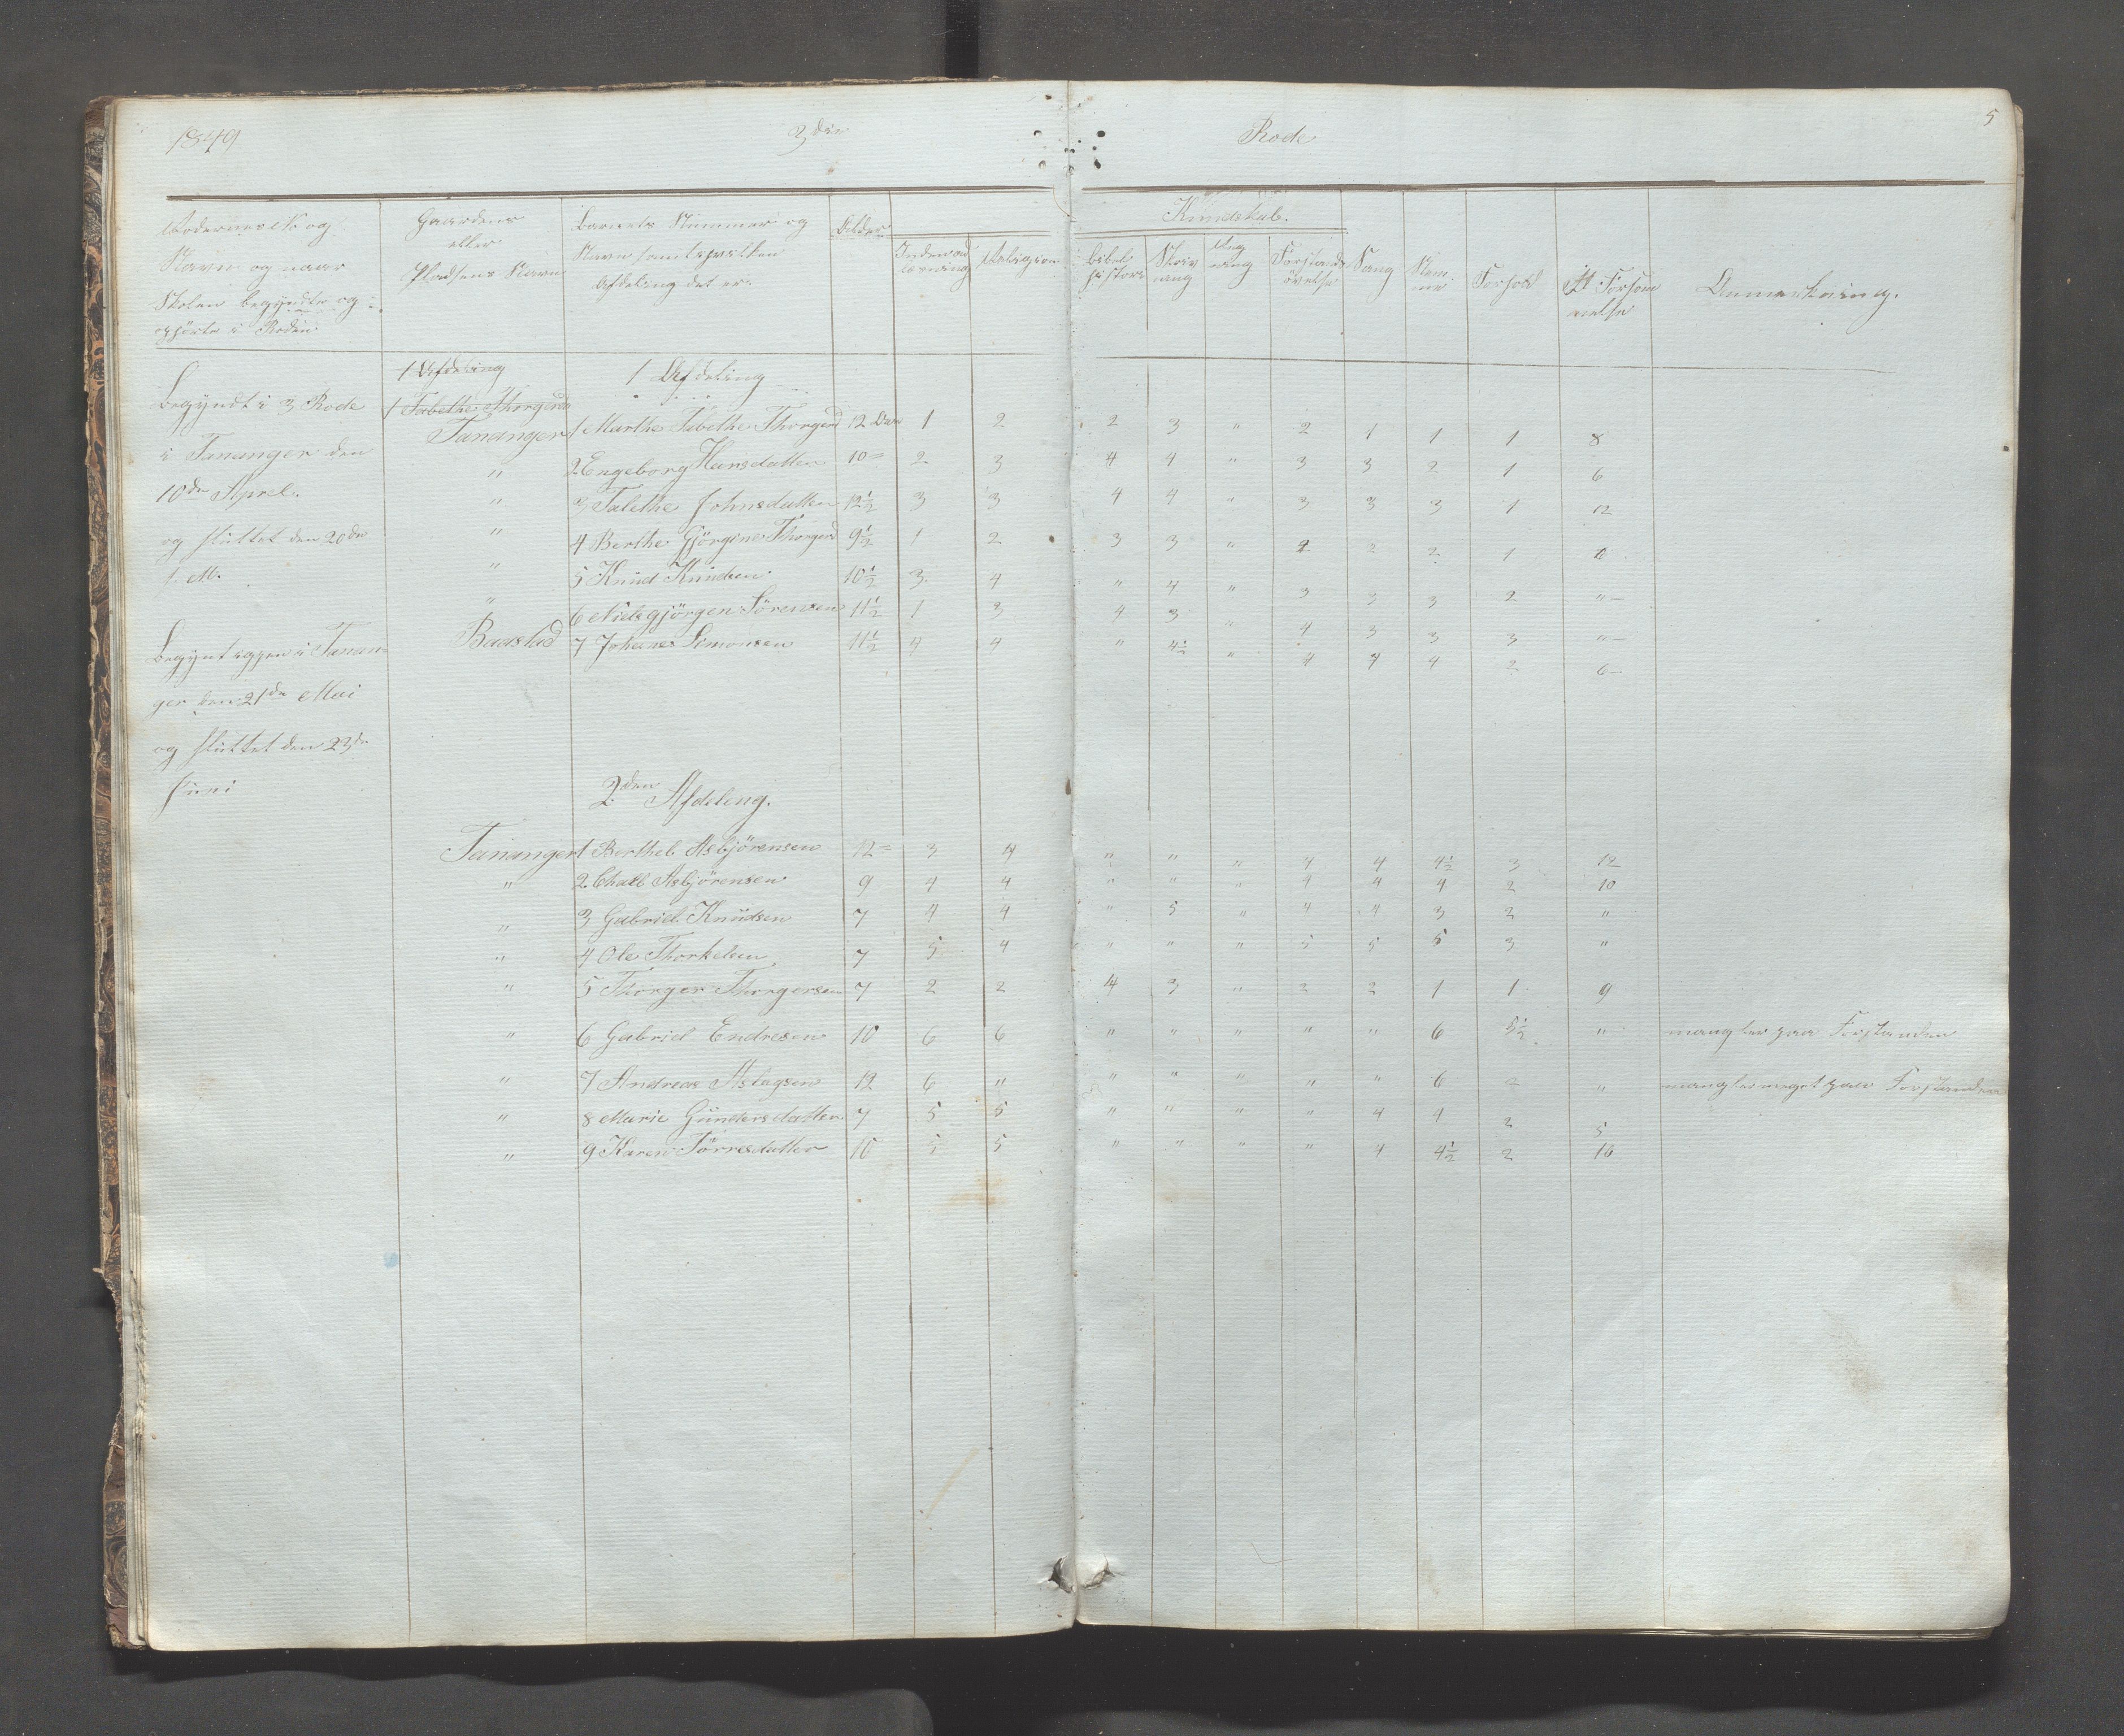 1849 3die Rode 5
Rodernes No og
Navn og naar
Skolen begyndte og
ophørte i Roden
Gaardens
eller
Pladsens Navn
Barnets Nummer og
Navn samt i hvilken
Afdeling det er.
Alder
Kundskab.
Indenad
læsning
Religion
Bibel
historie
Skriv
ning
Reg
ning
Forstands
øvelse
Sang
Nem
me
Forhold
Forsøm
melse
Anmærkning.
1 Afdeling
1 Afdeling
Begyndt i 3 Rode
i Tananger den
10de Aprel.
og sluttet den 20de
s. M.
Begynt igjen i Tanan-
ger den 21de Mai
og sluttet den 23de
Juni
1 Tabethe Thorgersd
Tananger 1 Marthe Tabethe Thorgersd 12 Aar 1 2 2 3 " 2 1 1 1 8
" 2 Engeborg Hansdatter 10 = 2 3 4 4 " 3 3 2 1 6
" 3 Talethe Johnsdatter 12½ 3 3 4 4 " 3 3 3 1 12
" 4 Berthe Gjørgine Thorgersd 9½ 1 2 3 3 " 2 2 2 1
" 5 Knud Knudsen 10½ 3 4 " 4 " 3 3 3 2 " –
" 6 Nielsgjörgen Sörensen 11½ 1 3 4 3 " 4 3 3 3 " –
Baastad 7 Johanes Simonsen 11½ 4 4 " 4½ " 4 4 4 2 6 –
2den Afdeling.
Tananger 1 Berthel Asbjörensen 12 = 3 4 " " " 4 4 4½ 3 12
" 2 Asbjörensen 9 4 4 " " " 4 4 4 2 10
" 3 Gabriel Knüdsen 7 4 4 " 5 " 4 4 3 2 "
" 4 Ole Thorkelsen 7 5 4 " " " 5 5 5 3 "
" 5 Thorger Thorgersen 7 2 2 4 3 " 2 2 1 1 9
" 6 Gabriel Endresen 10 6 6 " " " " " 6 5½ " mangler paa Forstanden
" 7 Andreas Aslagsen 12 6 " " " " " " 6 2 " mangler meget paa Forstanden
" 8 Marie Gundersdatter 7 5 5 " " " " 4 4 2 5
" 9 Karen Törresdatter 10 5 5 " " " " 4 4½ 2 10